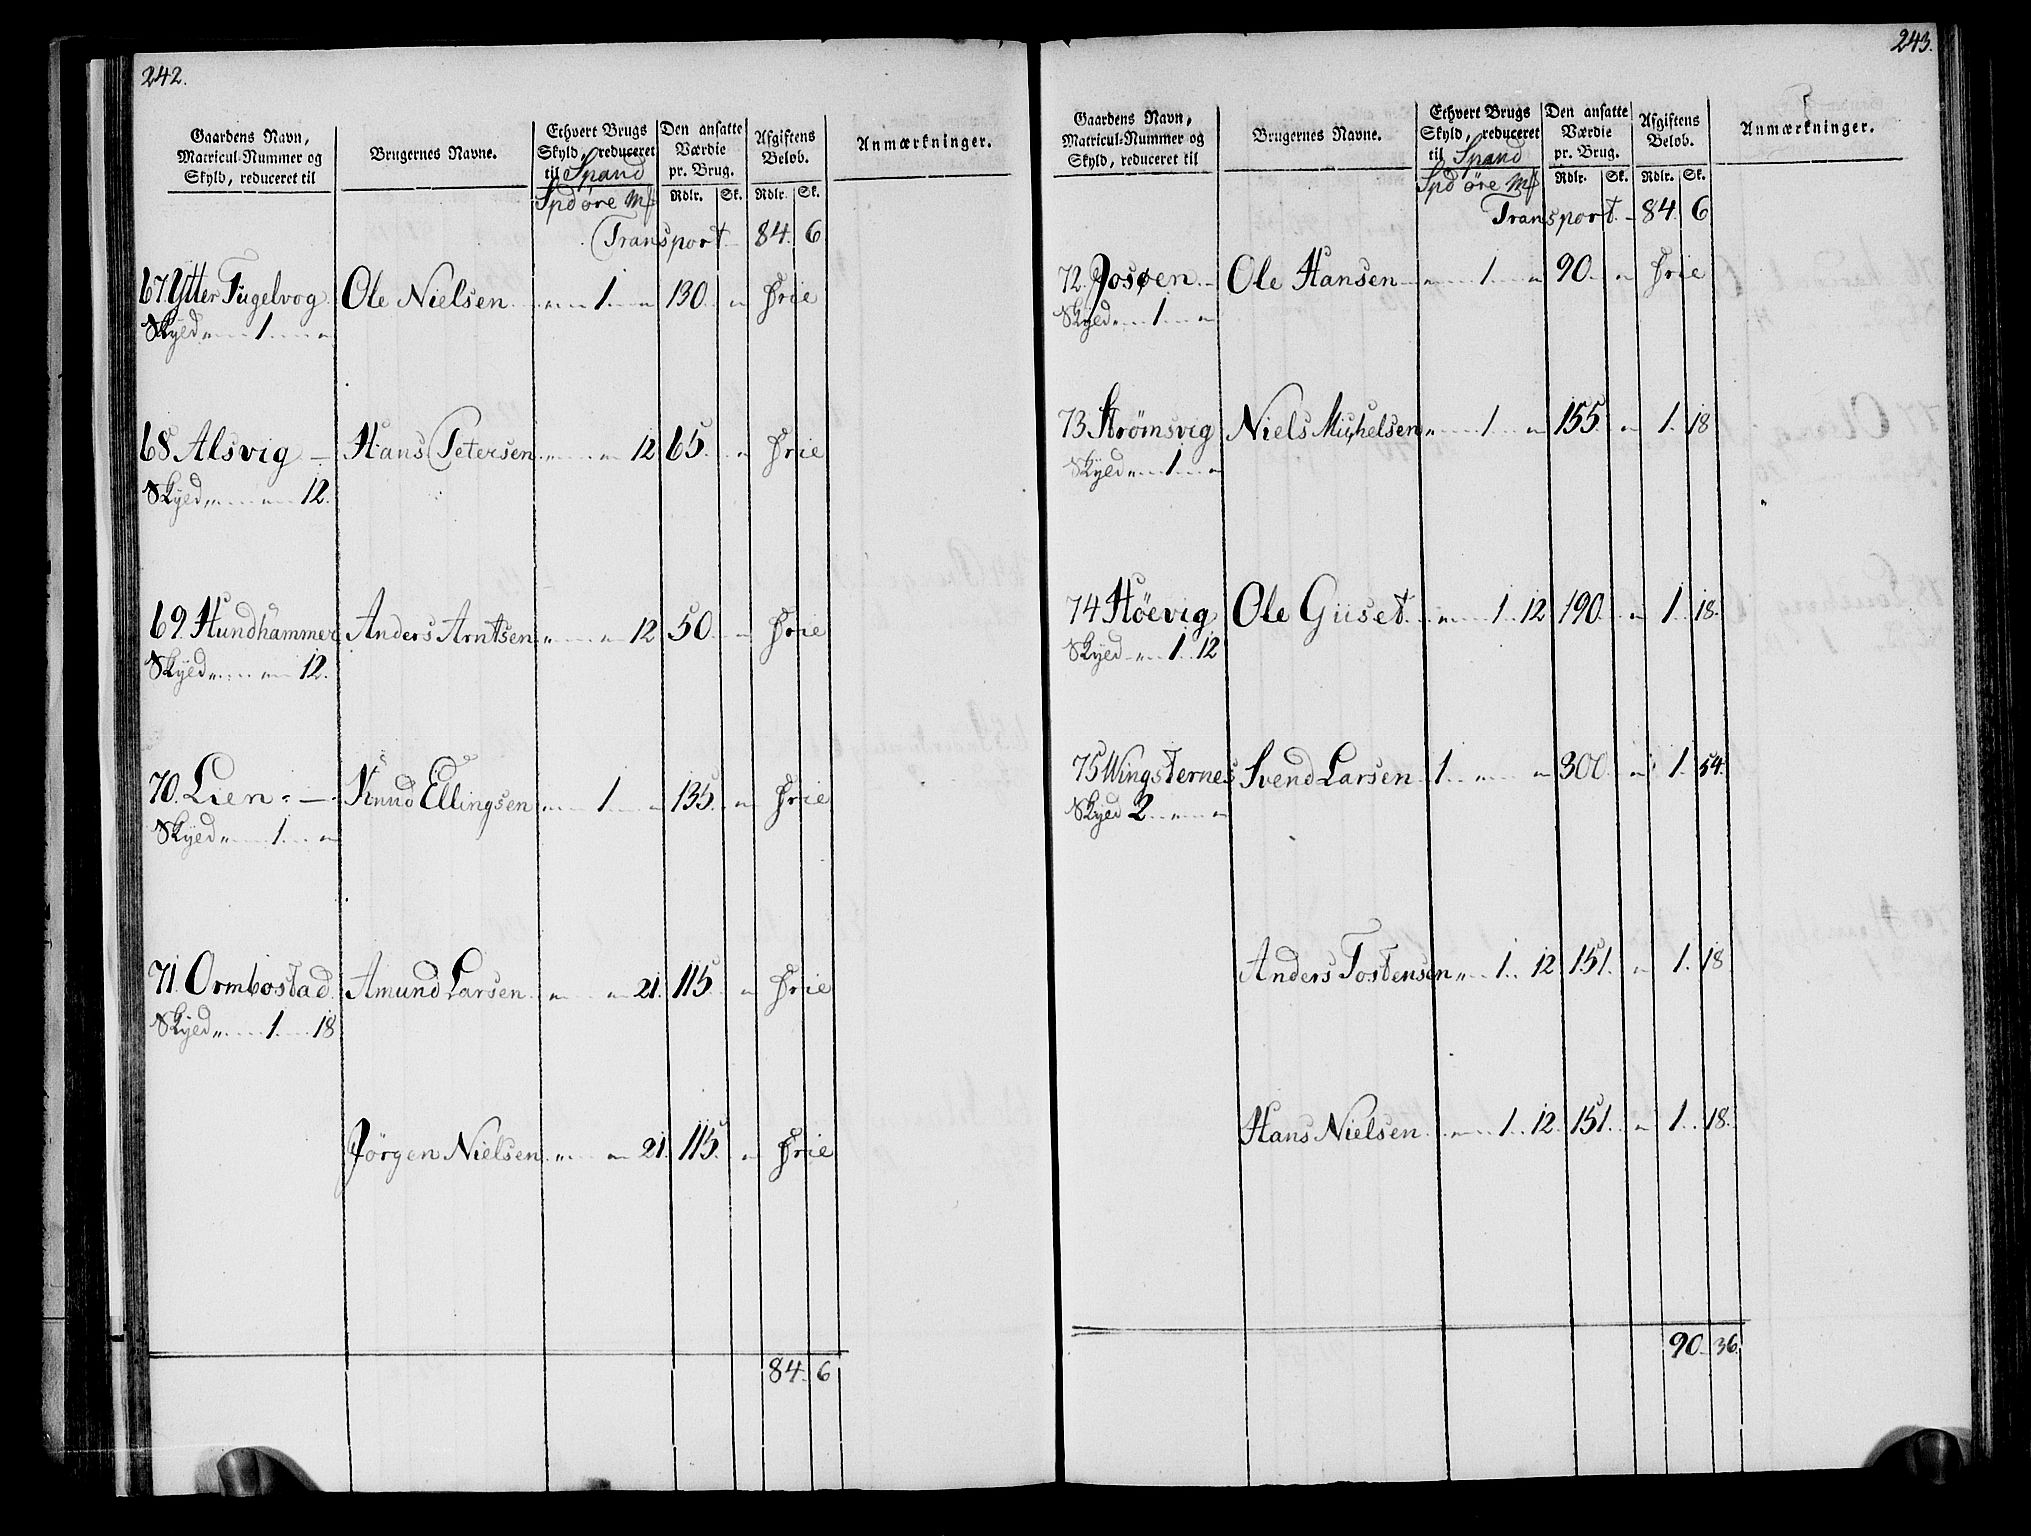 242.
Gaardens Navn, Matricul-Nummer og Skyld, reduceret til
Brugernes Navne.
Ethvert Brugs Skyld, reduceret til Spand
Spd øre
Den ansatte Værdie pr. Brug.
Rdlr. Sk.
Afgiftens Belob.
Rdlr. Sk.
Anmærkninger.
Transport 84. 6
67. Ytter Fugelvog Ole Nielsen „ 1. „ 130. „ Frie
Skyed „ 1. „
68 Alsvig Hans Petersen „ „ 12 65. „ Frie
Skyed „ „ 12.
69. Hundhammer Anders Arntsen „ „ 12 50. „ Frie
Skyed „ „ 12.
70. Lien Knud Ellingsen „ 1 „ 135. „ Frie
Skyed „ 1. „
71. Ormbostad Amund Larsen „ „ 21. 115. „ Frie
Skyed „ 1. 18
Jörgen Nielsen „ „ 21. 115. „ Frie
84. 6
243.
Gaardens Navn, Matricul-Nummer og Skyld, reduceret til
Brugernes Navne.
Ethvert Brugs Skyld, reduceret til Spand
Spd øre
Den ansatte Værdie pr. Brug.
Rdlr. Sk.
Afgiftens Belob.
Rdlr. Sk.
Anmærkninger.
Transport. 84. 6
72. Josøen Ole Hansen „ 1. „ 90. „ Frie
Skyed „ 1. „
73 Strömsvig Niels Michelsen „ 1 „ 155. „ 1. 18
Skyed „ 1. „
74 Höevig Ole Giset „ 1. 12 190. „ 1. 18.
Skyed „ 1. 12
75 Wingsternes Svend Larsen 1. „ „ 300. „ 1. 54.
Skyed 2. „ „
Anders Tostensen „ 1. 12 151. „ 1. 18
Hans Nielsen „ 1. 12. 151. „ 1. 18.
90. 36.